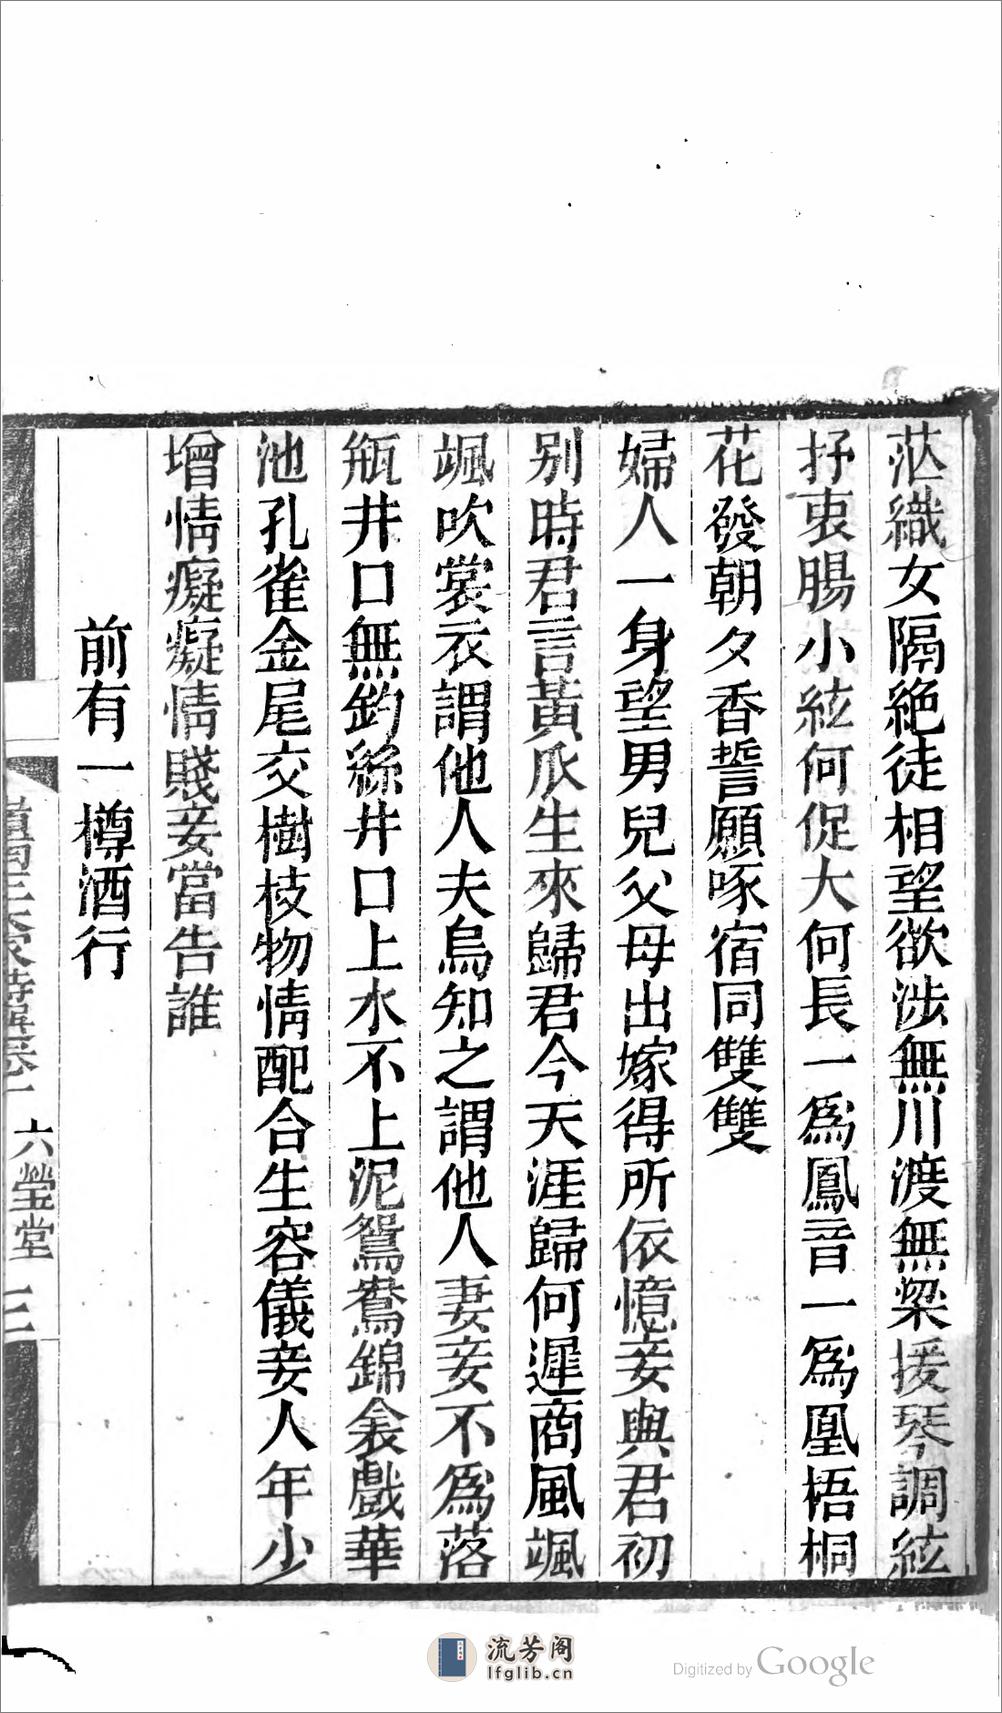 茫織女隔絶徒相望欲涉無川渡無梁援琴調絃
抒衷腸小絃何促大何長一爲鳳音一爲凰梧桐
花發朝夕香誓願啄宿同雙雙
婦人一身望男兒父母出嫁得所依憶妾與君初
别時君言黃瓜生來歸君今天涯歸何遲商風颯
颯吹裳衣謂他人夫烏知之謂他人妻妾不爲落
瓶井口無釣絲井口上水不上泥鴛鴦錦衾戲華
池孔雀金尾交樹枝物情配合生容儀妾人年少
增情癡癡情賤妾當告誰
前有一樽酒行
六瑩堂
三
流芳阁
lfglib.cn
Digitized by Google